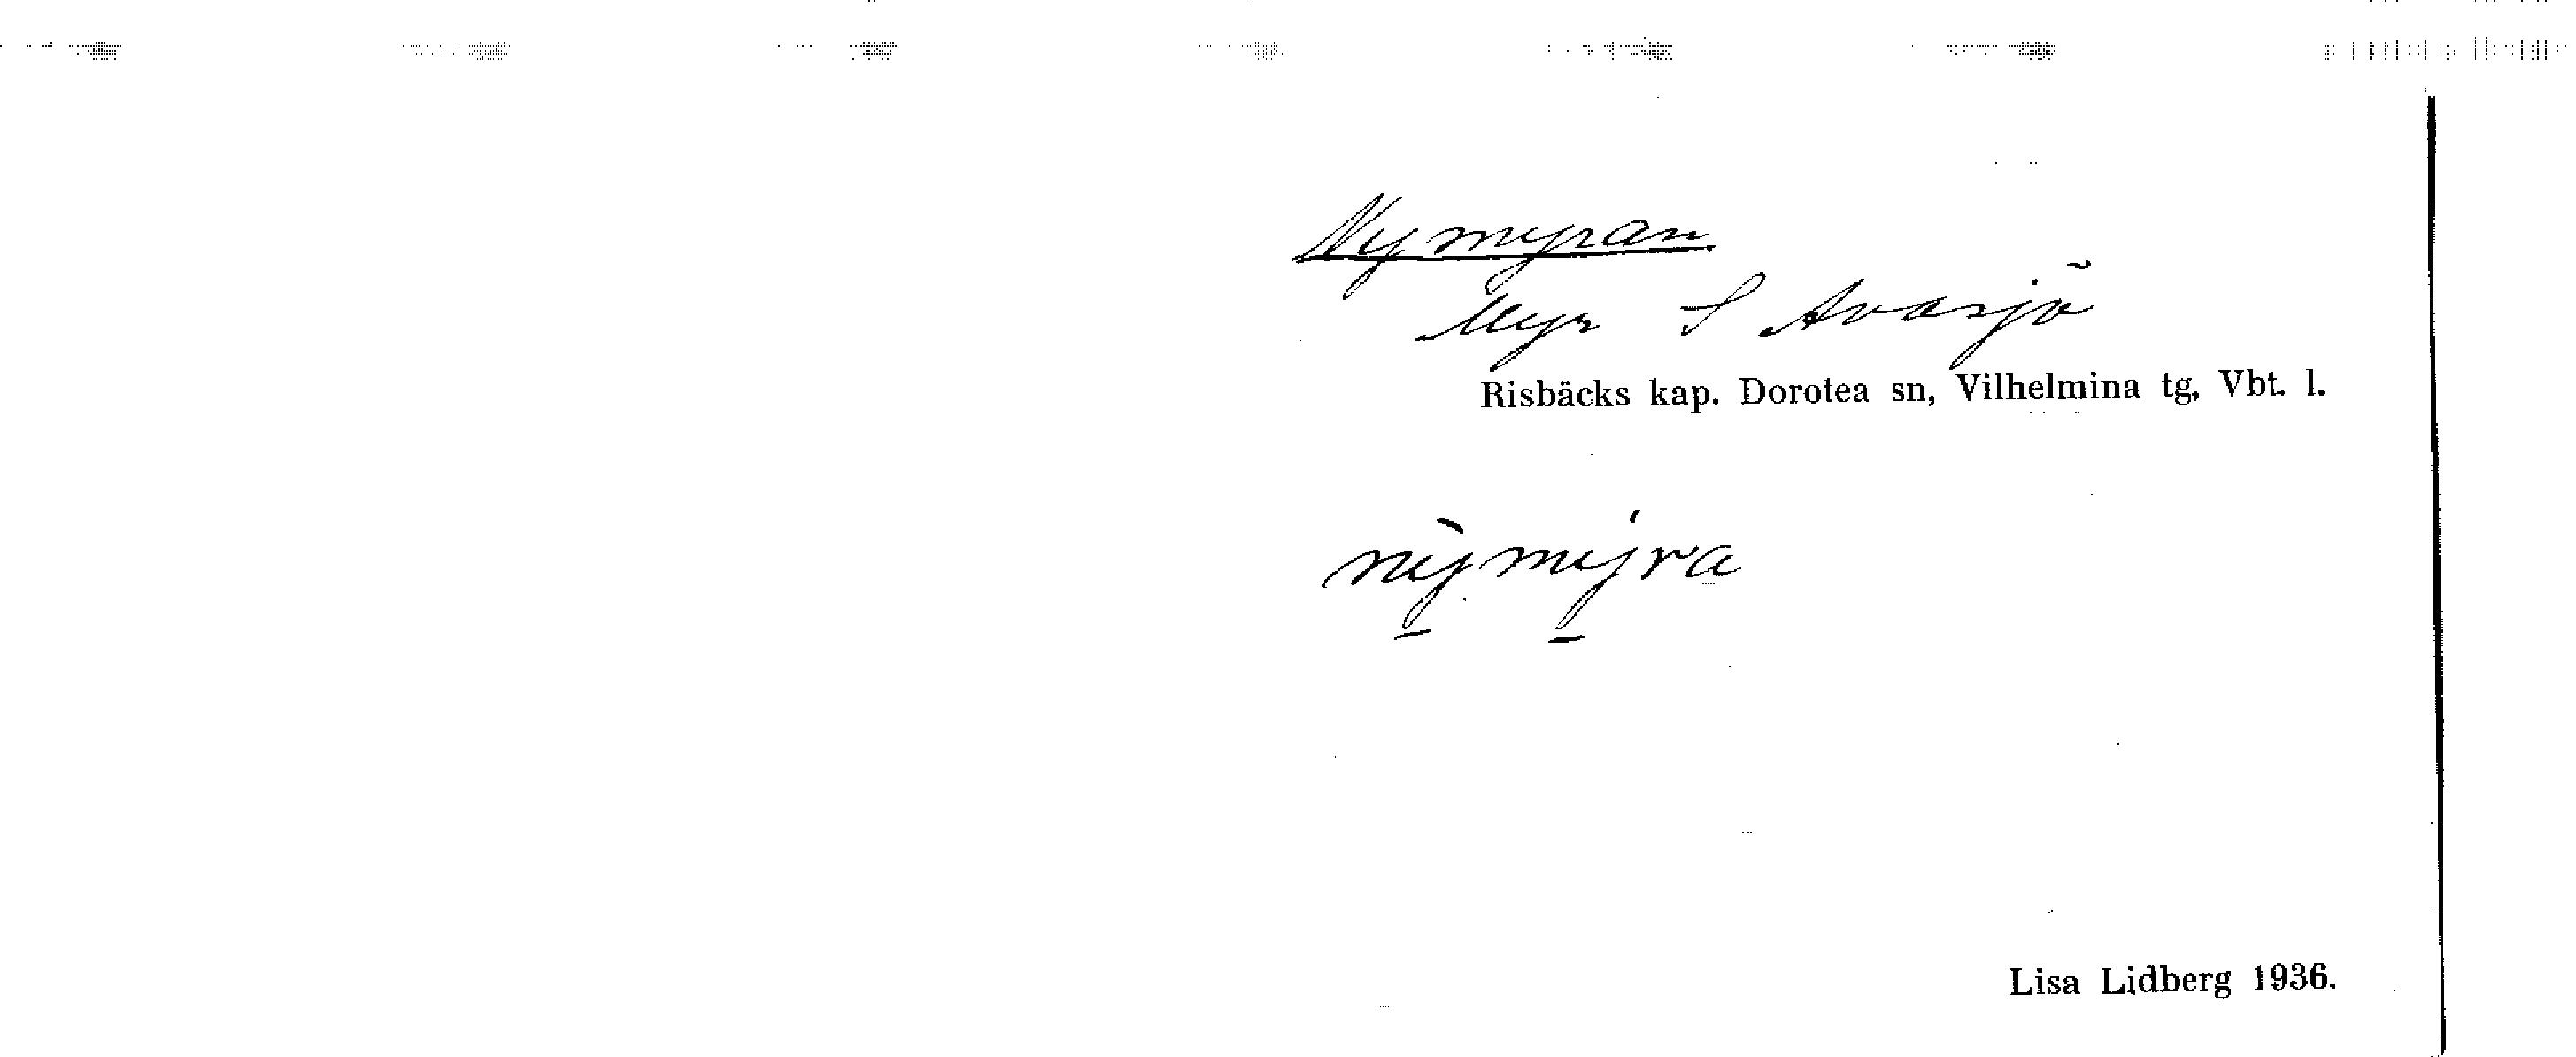 Nymyran
Myr S Avasjö
Risbäcks kap. Dorotea sn, Vilhelmina tg, Vbt. l.
nỳmýra
Lisa Lidberg 1936.